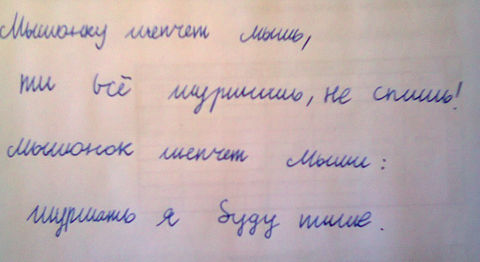 Мышонку шепчет мышь,
ты всё шуршишь, не спишь!
Мышонок шепчет мыши:
шуршать я буду тише.